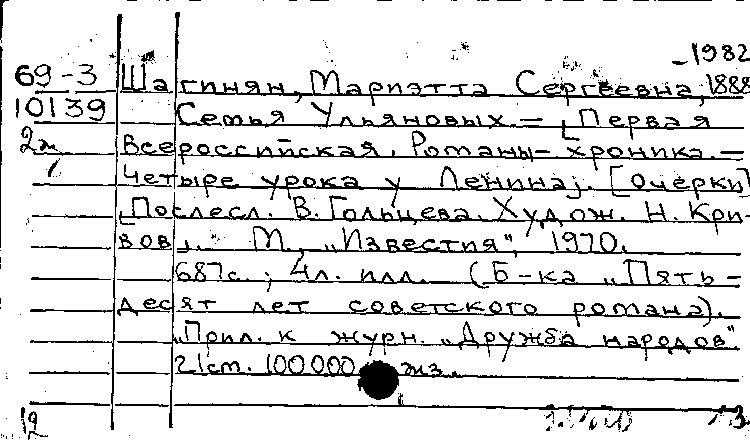 -1982
69-3 Шагинян, Мариэтта Сергеевна, 1888
10139 Семья Ульяновых. — [Первая
Всероссийская. Романы-хроника. —
Четыре урока у Ленина]. [Очерки]
[Послесл. В. Гольцева. Худож. Н. Кри-
вов]. М., "Известия", 1970.
687с.; 4л. илл. (Б-ка "Пять-
десят лет советского романа).
"Прил. к журн. "Дружба народов"
21cm. 100000 экз.